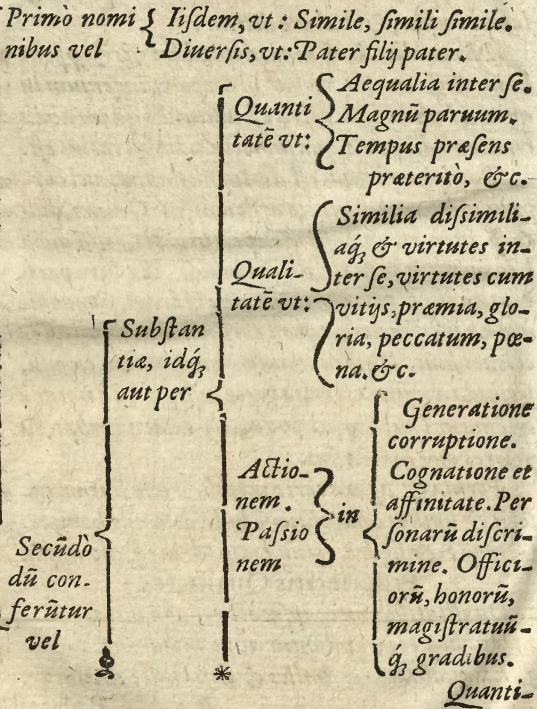 Primò nomi
nibus vel
Iisdem, vt: Simile, simili simile.
Diuersis, vt: Pater filij pater.
Secũdò
dũ con-
ferũtur
vel
Substan
tiæ, idq́ꝫ
aut per
Quanti
tatẽ vt:
Aequalia inter se.
Magnũ paruum.
Tempus præsens
præteritò, &c.
Quali-
tatẽ vt:
Similia dissimili-
aq́ꝫ & virtutes in-
ter se, virtutes cum
vitijs, præmia, glo-
ria, peccatum, pœ-
na, &c.
Actio-
nem.
Passio
nem
in
Generatione
corruptione.
Cognatione et
affinitate. Per
sonarũ discri-
mine. Offici-
orũ, honorũ,
magistratuũ-
q́ꝫ gradibus.
*
Quanti-